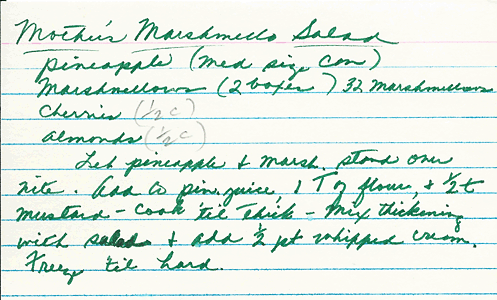 Mother's Marshmello Salad
pineapple (med size can)
Marshmellows (2 boxes) 32 Marshmellows
Cherries (½ c)
almonds (½ c)
Let pineapple & marsh. stand over
nite. Add to pin. juice, 1 T of flour, & ½ t
mustard - cook 'til thick - Mix thickening
with salad & add ½ pt whipped cream.
Freeze 'til hard.